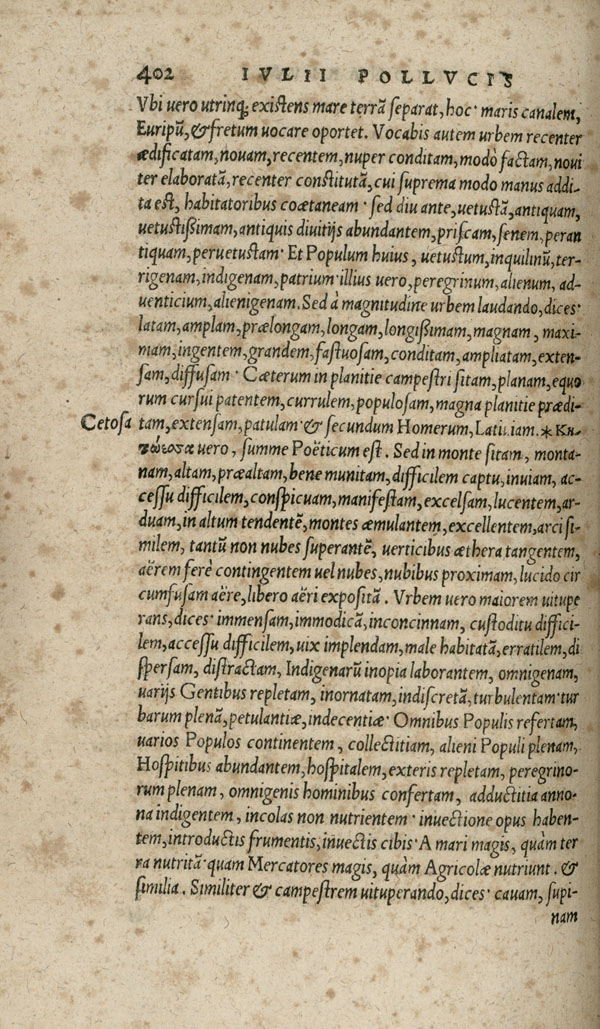 402 IVLII POLLVCIS
Vbi uero utrinq; existens mare terrã separat, hoc· maris canalem,
Euripũ, & fretum uocare oportet. Vocabis autem urbem recenter
ædificatam, nouam, recentem, nuper conditam, modò factam, noui
ter elaboratã, recenter constitutã, cui suprema modo manus addi-
ta est, habitatoribus coætaneam· sed diu ante, uetustã, antiquam,
uetustißimam, antiquis diuitijs abundantem, priscam, senem, peran
tiquam, peruetustam· Et Populum huius, uetustum, inquilinũ, ter-
rigenam, indigenam, patrium· illius uero, peregrinum, alienum, ad-
uenticium, alienigenam. Sed à magnitudine urbem laudando, dices·
latam, amplam, prælongam, longam, longißimam, magnam, maxi-
mam, ingentem, grandem, fastuosam, conditam, ampliatam, exten-
sam, diffusam· Cæterum in planitie campestri sitam, planam, equo
rum cursui patentem, currulem, populosam, magna planitie prædi-
Cetosa tam, extensam, patulam· & secundum Homerum, Latiuiam. * Κη-
τώωσσα uero, summe Poëticum est. Sed in monte sitam, monta-
nam, altam, præaltam, bene munitam, difficilem captu, inuiam, ac-
cessu difficilem, conspicuam, manifestam, excelsam, lucentem, ar-
duam, in altum tendentẽ, montes æmulantem, excellentem, arci si-
milem, tantũ non nubes superantẽ, uerticibus æthera tangentem,
aërem ferè contingentem uel nubes, nubibus proximam, lucido cir
cumfusam aëre, libero aëri expositã. Vrbem uero maiorem uitupe
rans, dices· immensam, immodicã, inconcinnam, custoditu diffici-
lem, accessu difficilem, uix implendam, male habitatã, erratilem, di
spersam, distractam, Indigenarũ inopia laborantem, omnigenam,
uarijs Gentibus repletam, inornatam, indiscretã, turbulentam· tur
barum plenã, petulantiæ, indecentiæ· Omnibus Populis refertam,
uarios Populos continentem, collectitiam, alieni Populi plenam,
Hospitibus abundantem, hospitalem, exteris repletam, peregrino-
rum plenam, omnigenis hominibus confertam, adductitia anno-
na indigentem, incolas non nutrientem· inuectione opus haben-
tem, introductis frumentis, inuectis cibis· A mari magis, quàm ter
ra nutritã· quam Mercatores magis, quàm Agricolæ nutriunt. &
similia. Similiter & campestrem uituperando, dices· cauam, supi-
nam